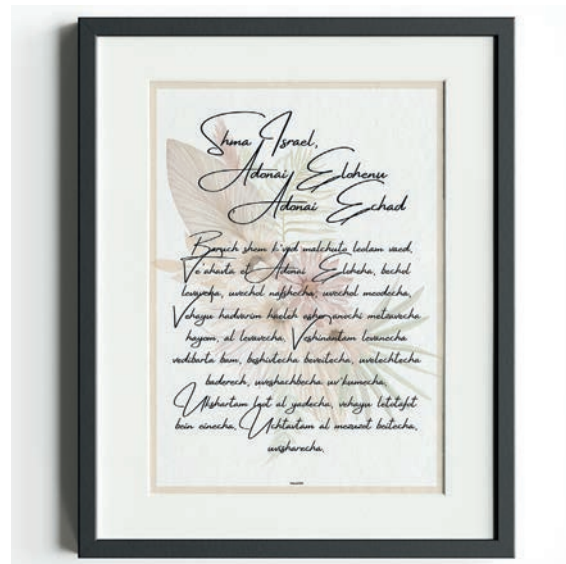 Shma Israel,
Adonai Elohenu
Adonai Echad
Baruch shem k'vod malchuto leolam vaed,
Ve'ahavta et Adonai Eloheha, bechol
levavcha, uvechol nafshecha, uvechol meodecha,
Vehayu hadvarim haeleh asher anochi metzavecha
hayom, al levavecha, Veshinantam levanecha
vedibarta bam, beshivtecha beveitecha, uvelechtecha
baderech, uveshachbecha uv'kumecha,
Ukshartam leot al yadecha, vehayu letotafot
bein einecha, Uchtavtam al mezuzot beitecha,
uvisharecha,